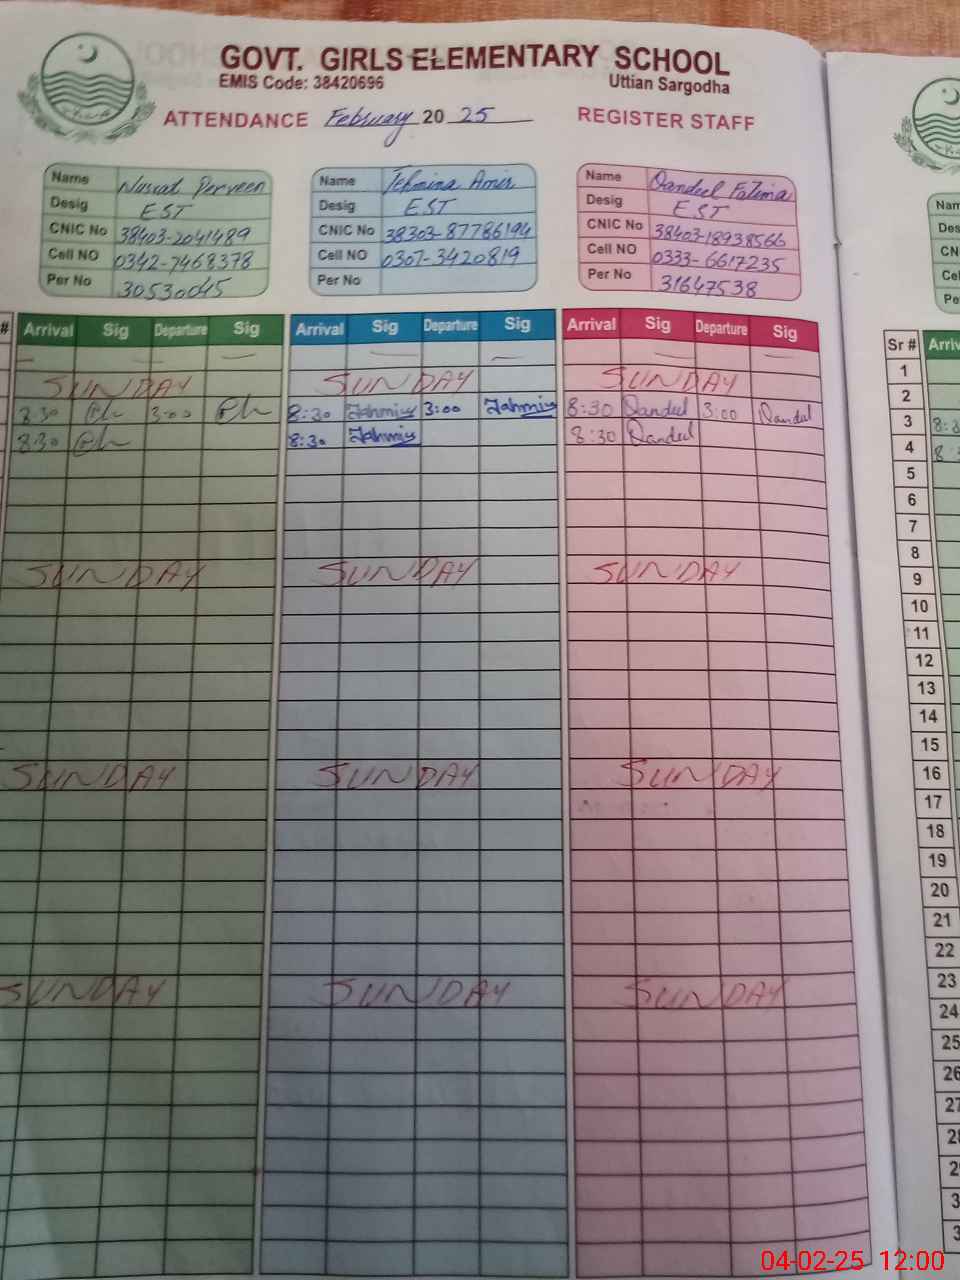 GOVT. GIRLS ELEMENTARY SCHOOL
EMIS Code: 38420696
Uttian Sargodha
ATTENDANCE February 20 25 REGISTER STAFF
Name Nusrat Perveen
Desig EST
CNIC No 38403-2041489
Cell NO 0342-7468378
Per No 30530045
Name Tehmina Amir
Desig EST
CNIC No 38303-87786194
Cell NO 0307-3420819
Per No
Name Qandeel Fatima
Desig EST
CNIC No 38403-18938566
Cell NO 0333-6617235
Per No 31647538
# Arrival Sig Departure Sig Arrival Sig Departure Sig Arrival Sig Departure Sig
SUNDAY SUNDAY SUNDAY
8:30 3:00 8:30 Tahmina 3:00 Tahmina 8:30 Qandeel 3:00 Qandeel
8:30 8:30 Tahmina 8:30 Qandeel
SUNDAY SUNDAY SUNDAY
SUNDAY SUNDAY SUNDAY
SUNDAY SUNDAY SUNDAY
Nam
Des
CN
Cel
Pe
Sr # Arriv
1
2
3 8:3
4 8:
5
6
7
8
9
10
11
12
13
14
15
16
17
18
19
20
21
22
23
24
25
26
27
28
2
3
3
04-02-25 12:00